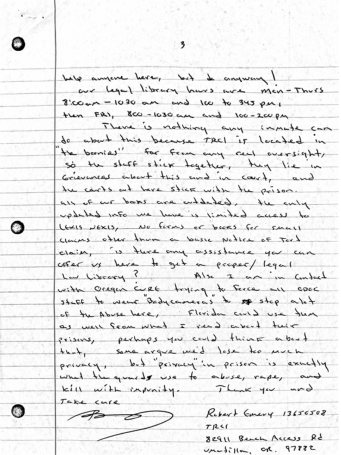 3
help anyone here, but do anyway!
our legal library hours are mon-Thurs
8:00am - 1030 am and 100 to 345 pm,
then FRI, 800-1030 am and 100-200 pm
There is nothing any inmate can
do about this because TRCI is located in
"the boonies" far from any real oversight,
so the staff stick together, they lie in
Grievances about this and in court, and
the courts out here stick with the prison.
all of our books are outdated, the only
updated info we have is limited access to
LEXIS NEXIS, no forms or books for small
claims other than a basic Notice of Tort
claim, is there any assistance you can
offer us here to get a proper/legal
Law Library? Also I am in contact
with Oregon CURE trying to force all ODOC
staff to wear "Bodycameras" to stop alot
of the Abuse here, Florida could use them
as well from what I read about their
prisons, perhaps you could think about
that, some argue we'd lose too much
privacy, but "privacy" in prison is exactly
what the guards use to abuse, rape, and
kill with impunity. Thank you and
Take care
Robert Emery 13656508
TRCI
82911 Beach Access Rd
Umatilla, OR. 97882